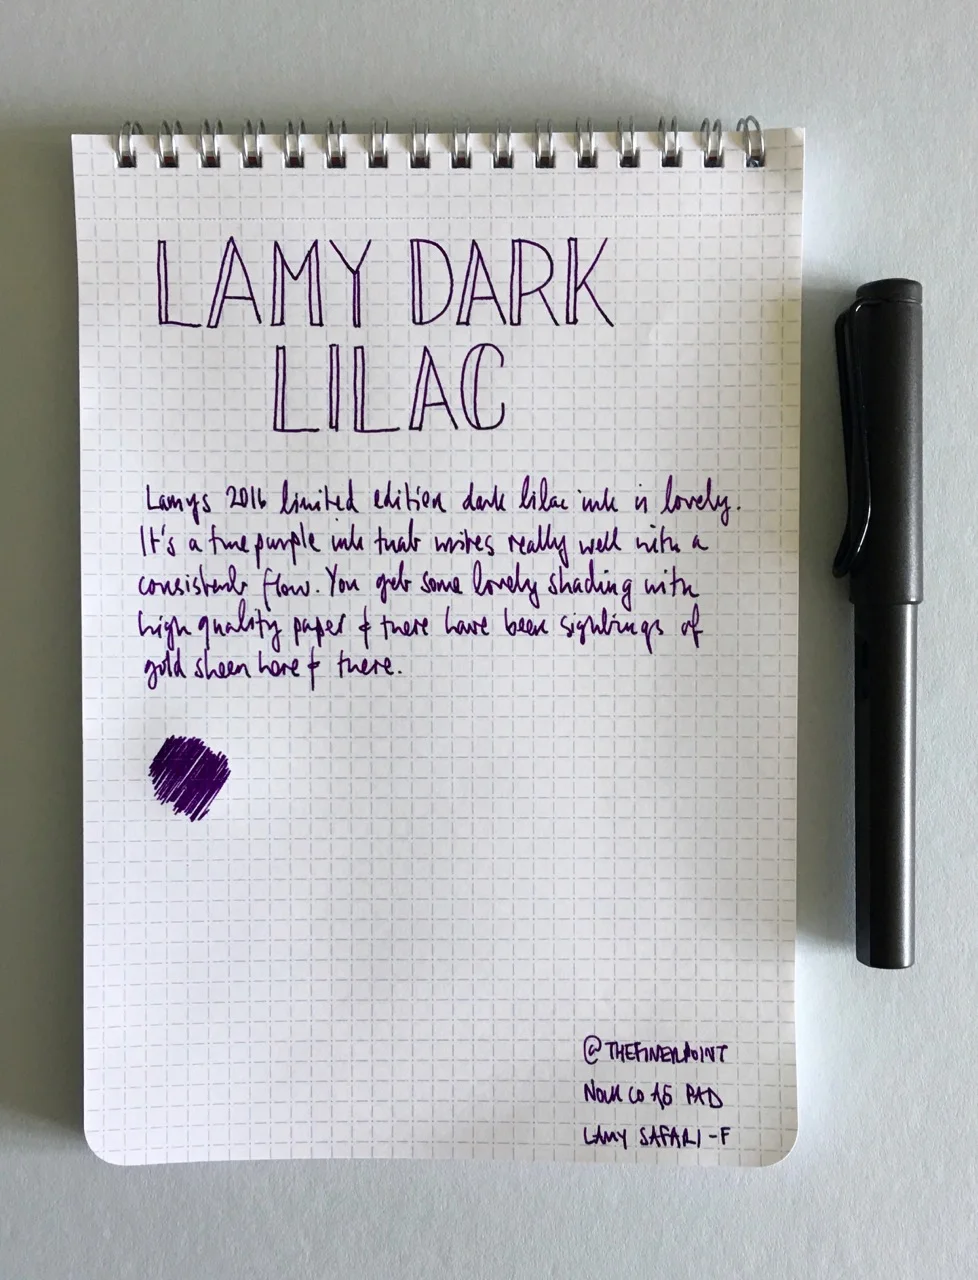 LAMY DARK
LILAC
Lamys 2016 limited edition dark lilac ink is lovely.
It's a true purple ink that writes really well with a
consistent flow. You get some lovely shading with
high quality paper & there have been sightings of
gold sheen here & there.
@THEFINERPOINT
Nock Co A5 PAD
LAMY SAFARI -F